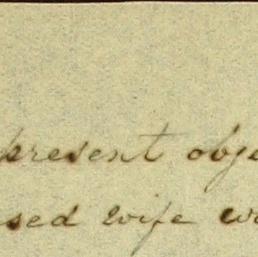 present obje
sed wife w